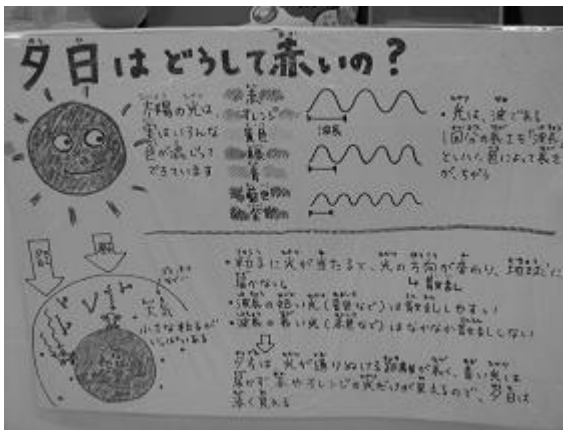 夕日はどうして赤いの？
太陽の光は、
実はいろんな
色が混じって
できています
赤
オレンジ
黄色
緑
青
藍色
紫
波長
・光は、波である
1回分の長さを「波長」
といい、色によって長さ
が、ちがう
大気
小さな粒が
いっぱいある
・粒に光が当たると、光の方向が変わり、地球に
届かない
↳散乱
・波長の短い光(青色など)は散乱しやすい
・波長の長い光(赤色など)はなかなか散乱しない
夕方は光が通りぬける距離が長く、青い光は
届かず赤やオレンジの光だけが見えるので、夕日は
赤く見える